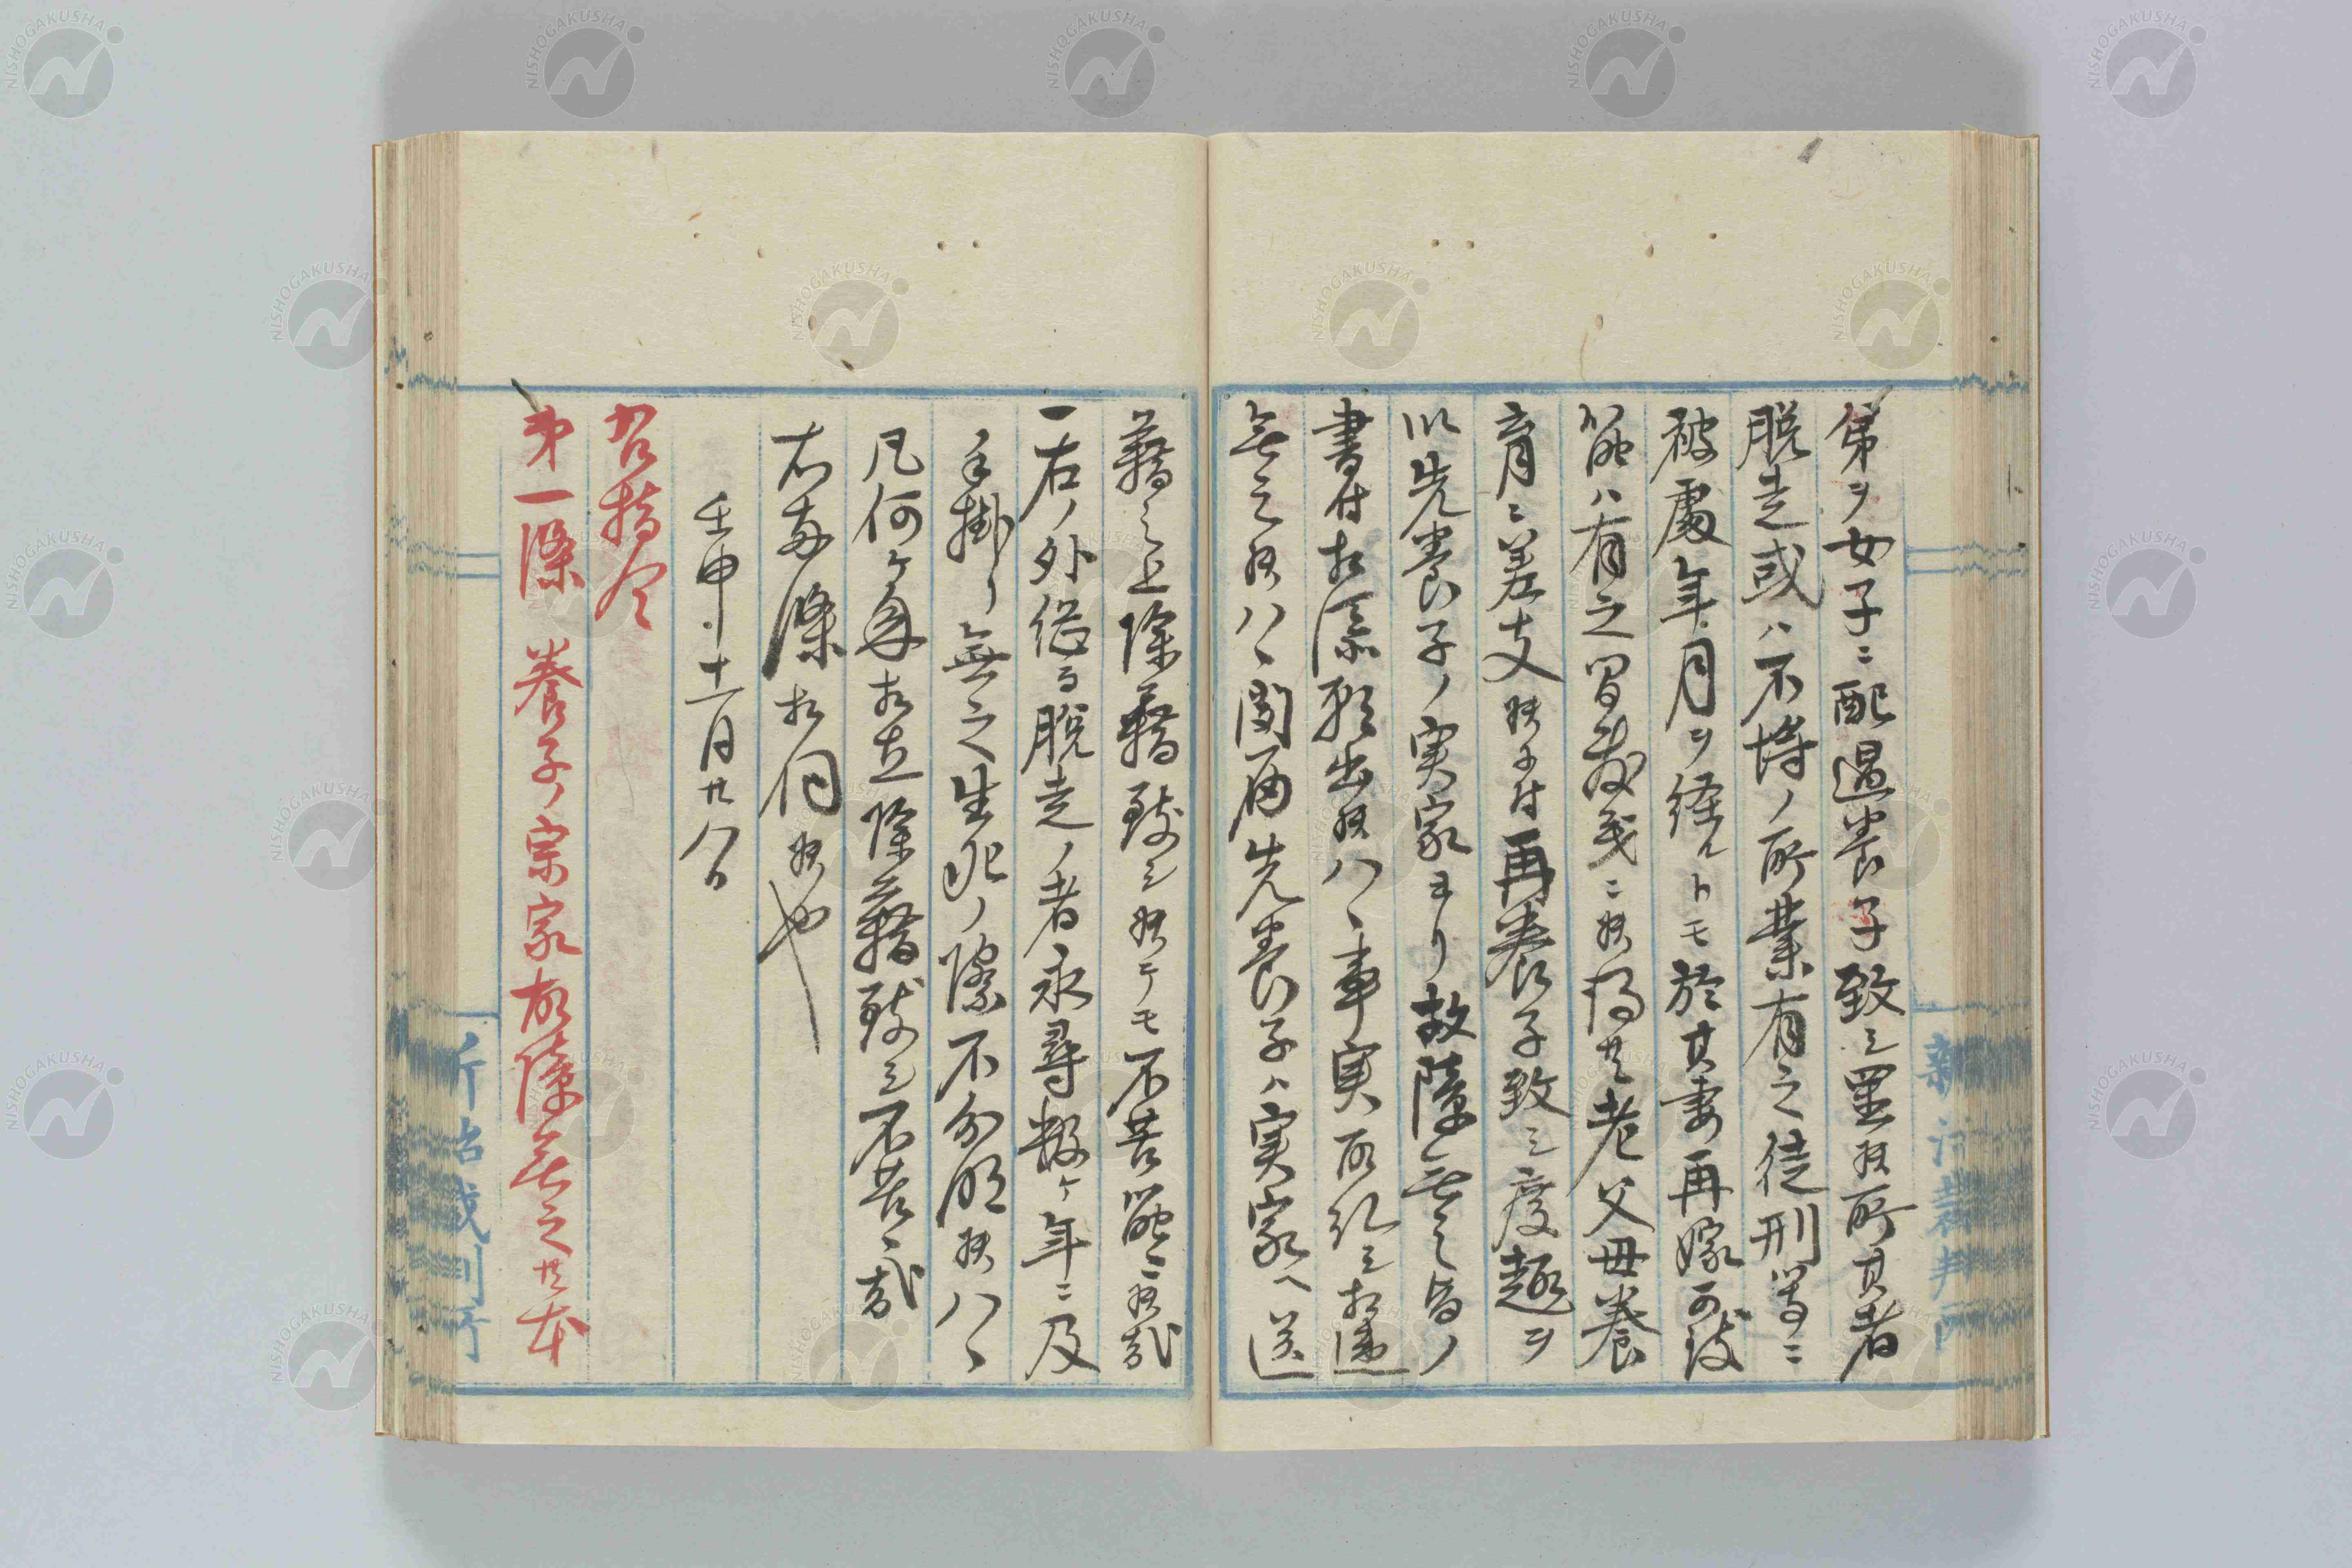 弟ヲ女子ニ配遇養子致シ置候所其者
脱走或ハ不埒ノ所業有之徒刑等ニ
被處年月ヲ経ルトモ於其妻再嫁可致
筋ハ有之間敷義ニ候得共老父母養
育ニ差支候ニ付再養子致シ度趣ヲ
以先養子ノ実家ヨリ故障無之旨ノ
書付相添願出候ハヽ事実取糺シ相違
無之候ハヽ聞届先養子ハ実家ヘ送
籍之上除籍致シ候テモ不苦筋ニ候哉
一右ノ外偖又脱走ノ者永尋数ケ年ニ及
手掛リ無之生死ノ際不分明候ハヽ
凡何ケ年相立除籍致シ不苦哉
右両條相伺候也
壬申十一月廿八日
御指令
第一條 養子ノ宗家故障無之共本
新治裁判所
NISHOGAKUSHA